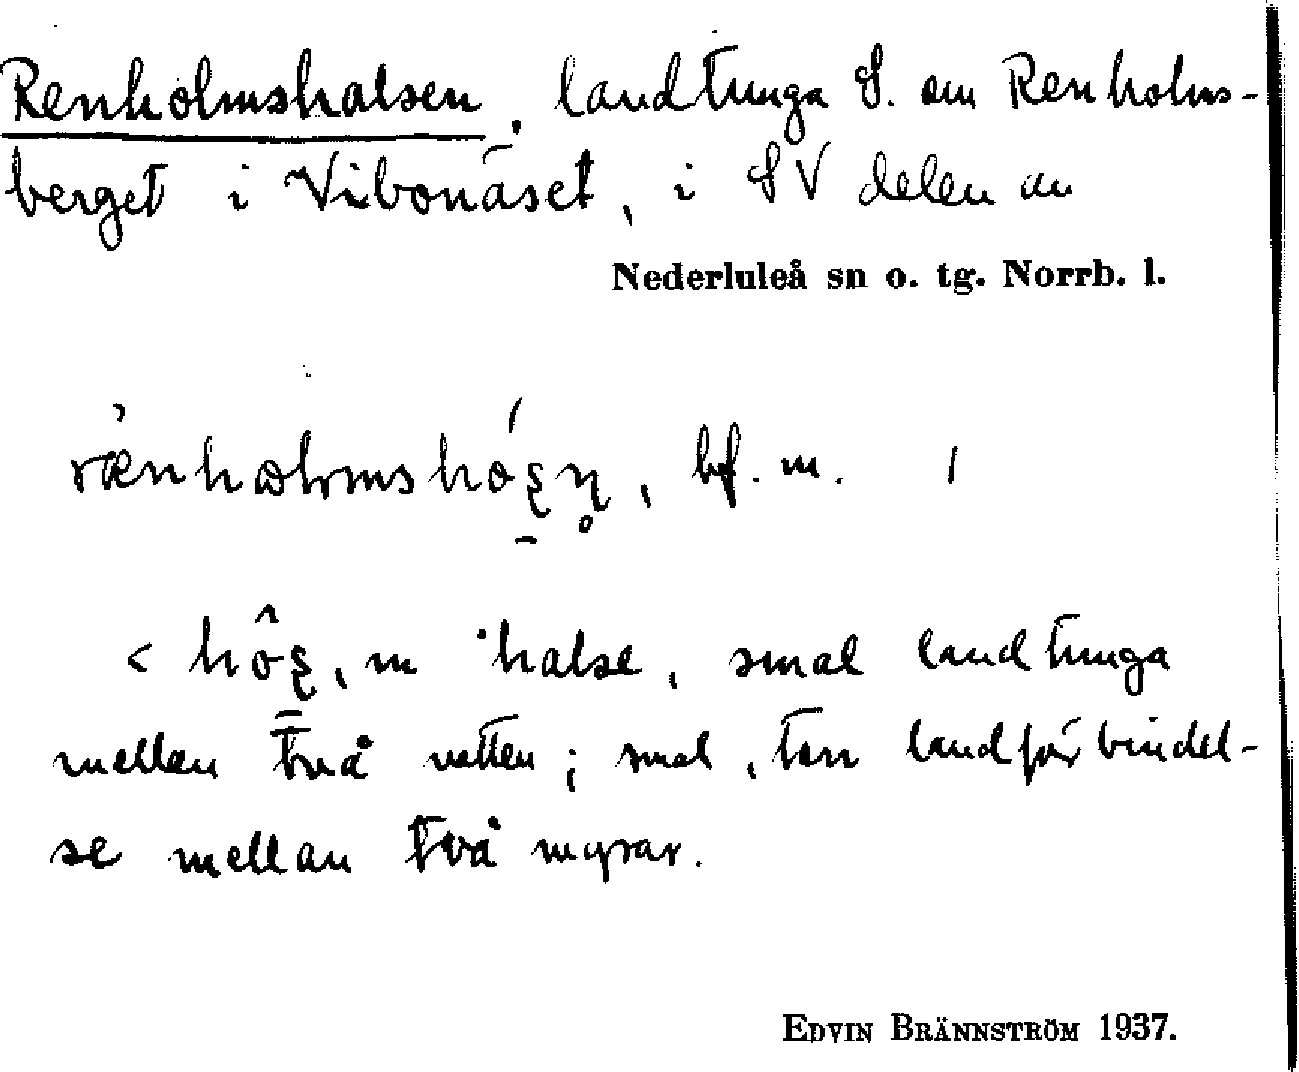 Renholmshalsen, landtunga S. om Renholms-
berget i Vibonäset, i SV delen av
Nederluleå sn o. tg. Norrb. l.
bf. m.
m 'halse, smal landtunga
mellan två vatten; smal, torr landförbindel-
se mellan två myrar.
EDVIN BRÄNNSTRÖM 1937.